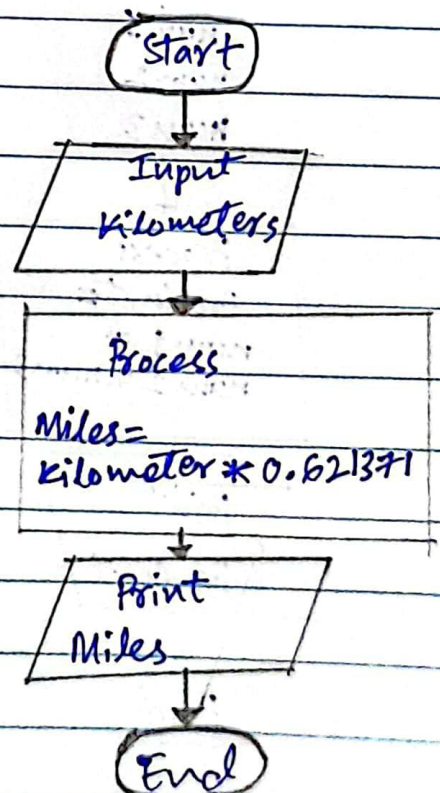 Start
Input
Kilometers
Process
Miles=
Kilometer * 0.621371
Print
Miles
End